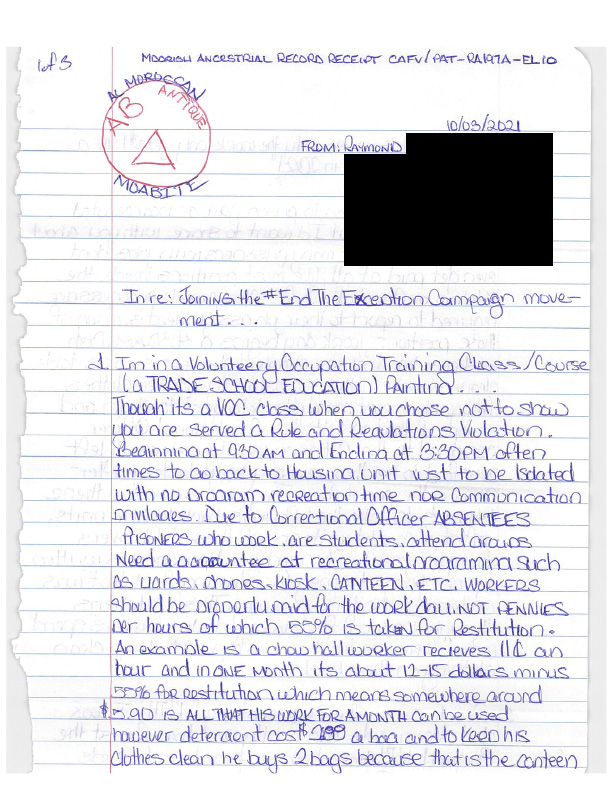 1 of 3
MOORISH ANCESTRIAL RECORD RECEIPT CAFV/PAT-RA197A-EL10
AL MOROCCAN
AB
ANTIQUE
MOABITE
10/03/2021
FROM: RAYMOND
In re: Joining the #EndTheException Campaign move-
ment...
1. Im in a Volunteery Occupation Training Class/Course
(a TRADE SCHOOL EDUCATION) Painting...
Though its a VOC class when you choose not to show
you are served a Rule and Regulations Violation.
Beginning at 930AM and Ending at 3:30PM often
times to go back to Housing unit just to be Isolated
with no program recreation time nor Communication
privilages. Due to Correctional Officer ABSENTEES
PRISONERS who work, are students, attend groups
Need a accountee at recreational programing such
as yards, phones, kiosk, CANTEEN, ETC. WORKERS
should be properly paid for the work day, NOT PENNIES
per hours of which 55% is taken for Restitution.
An example is a chow hall worker recieves 11¢ an
hour and in ONE MONTH its about 12-15 dollars minus
55% for restitution which means somewhere around
$5.90 IS ALL THAT HIS WORK FOR A MONTH can be used
however detergent cost $2.99 a bag and to keep his
clothes clean he buys 2 bags because that is the canteen